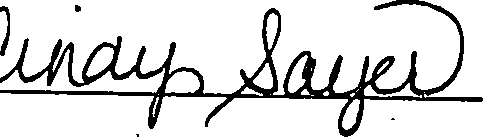 Cindy Sayer